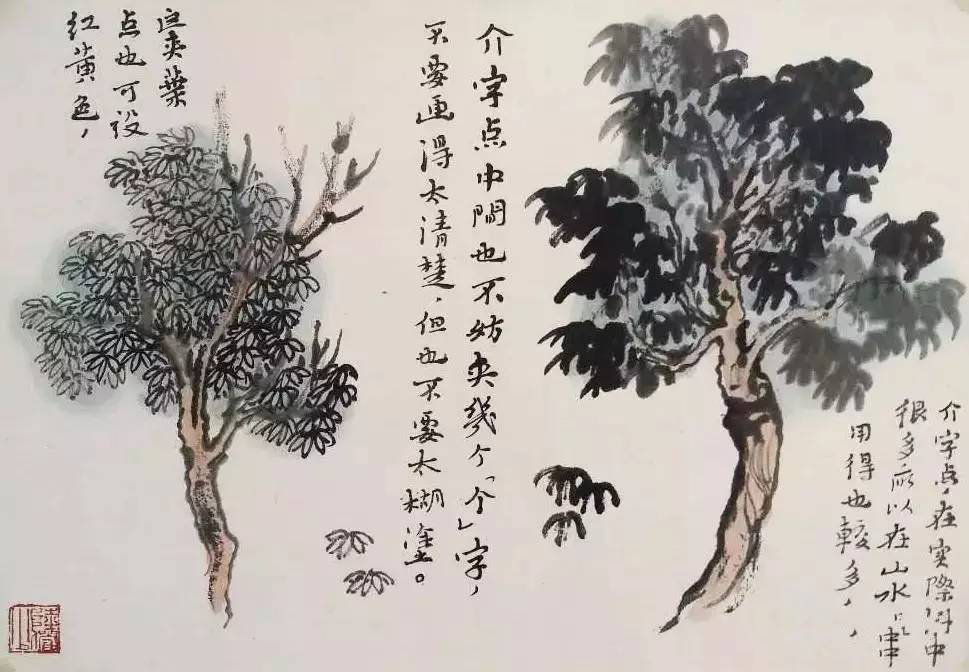 介字点中間也不妨夹幾个「个」字，
不要画得太清楚，但也不要太糊塗。
介字点，在實際中
很多所以在山水中
用得也較多，
夹葉
点也可设
红黄色，